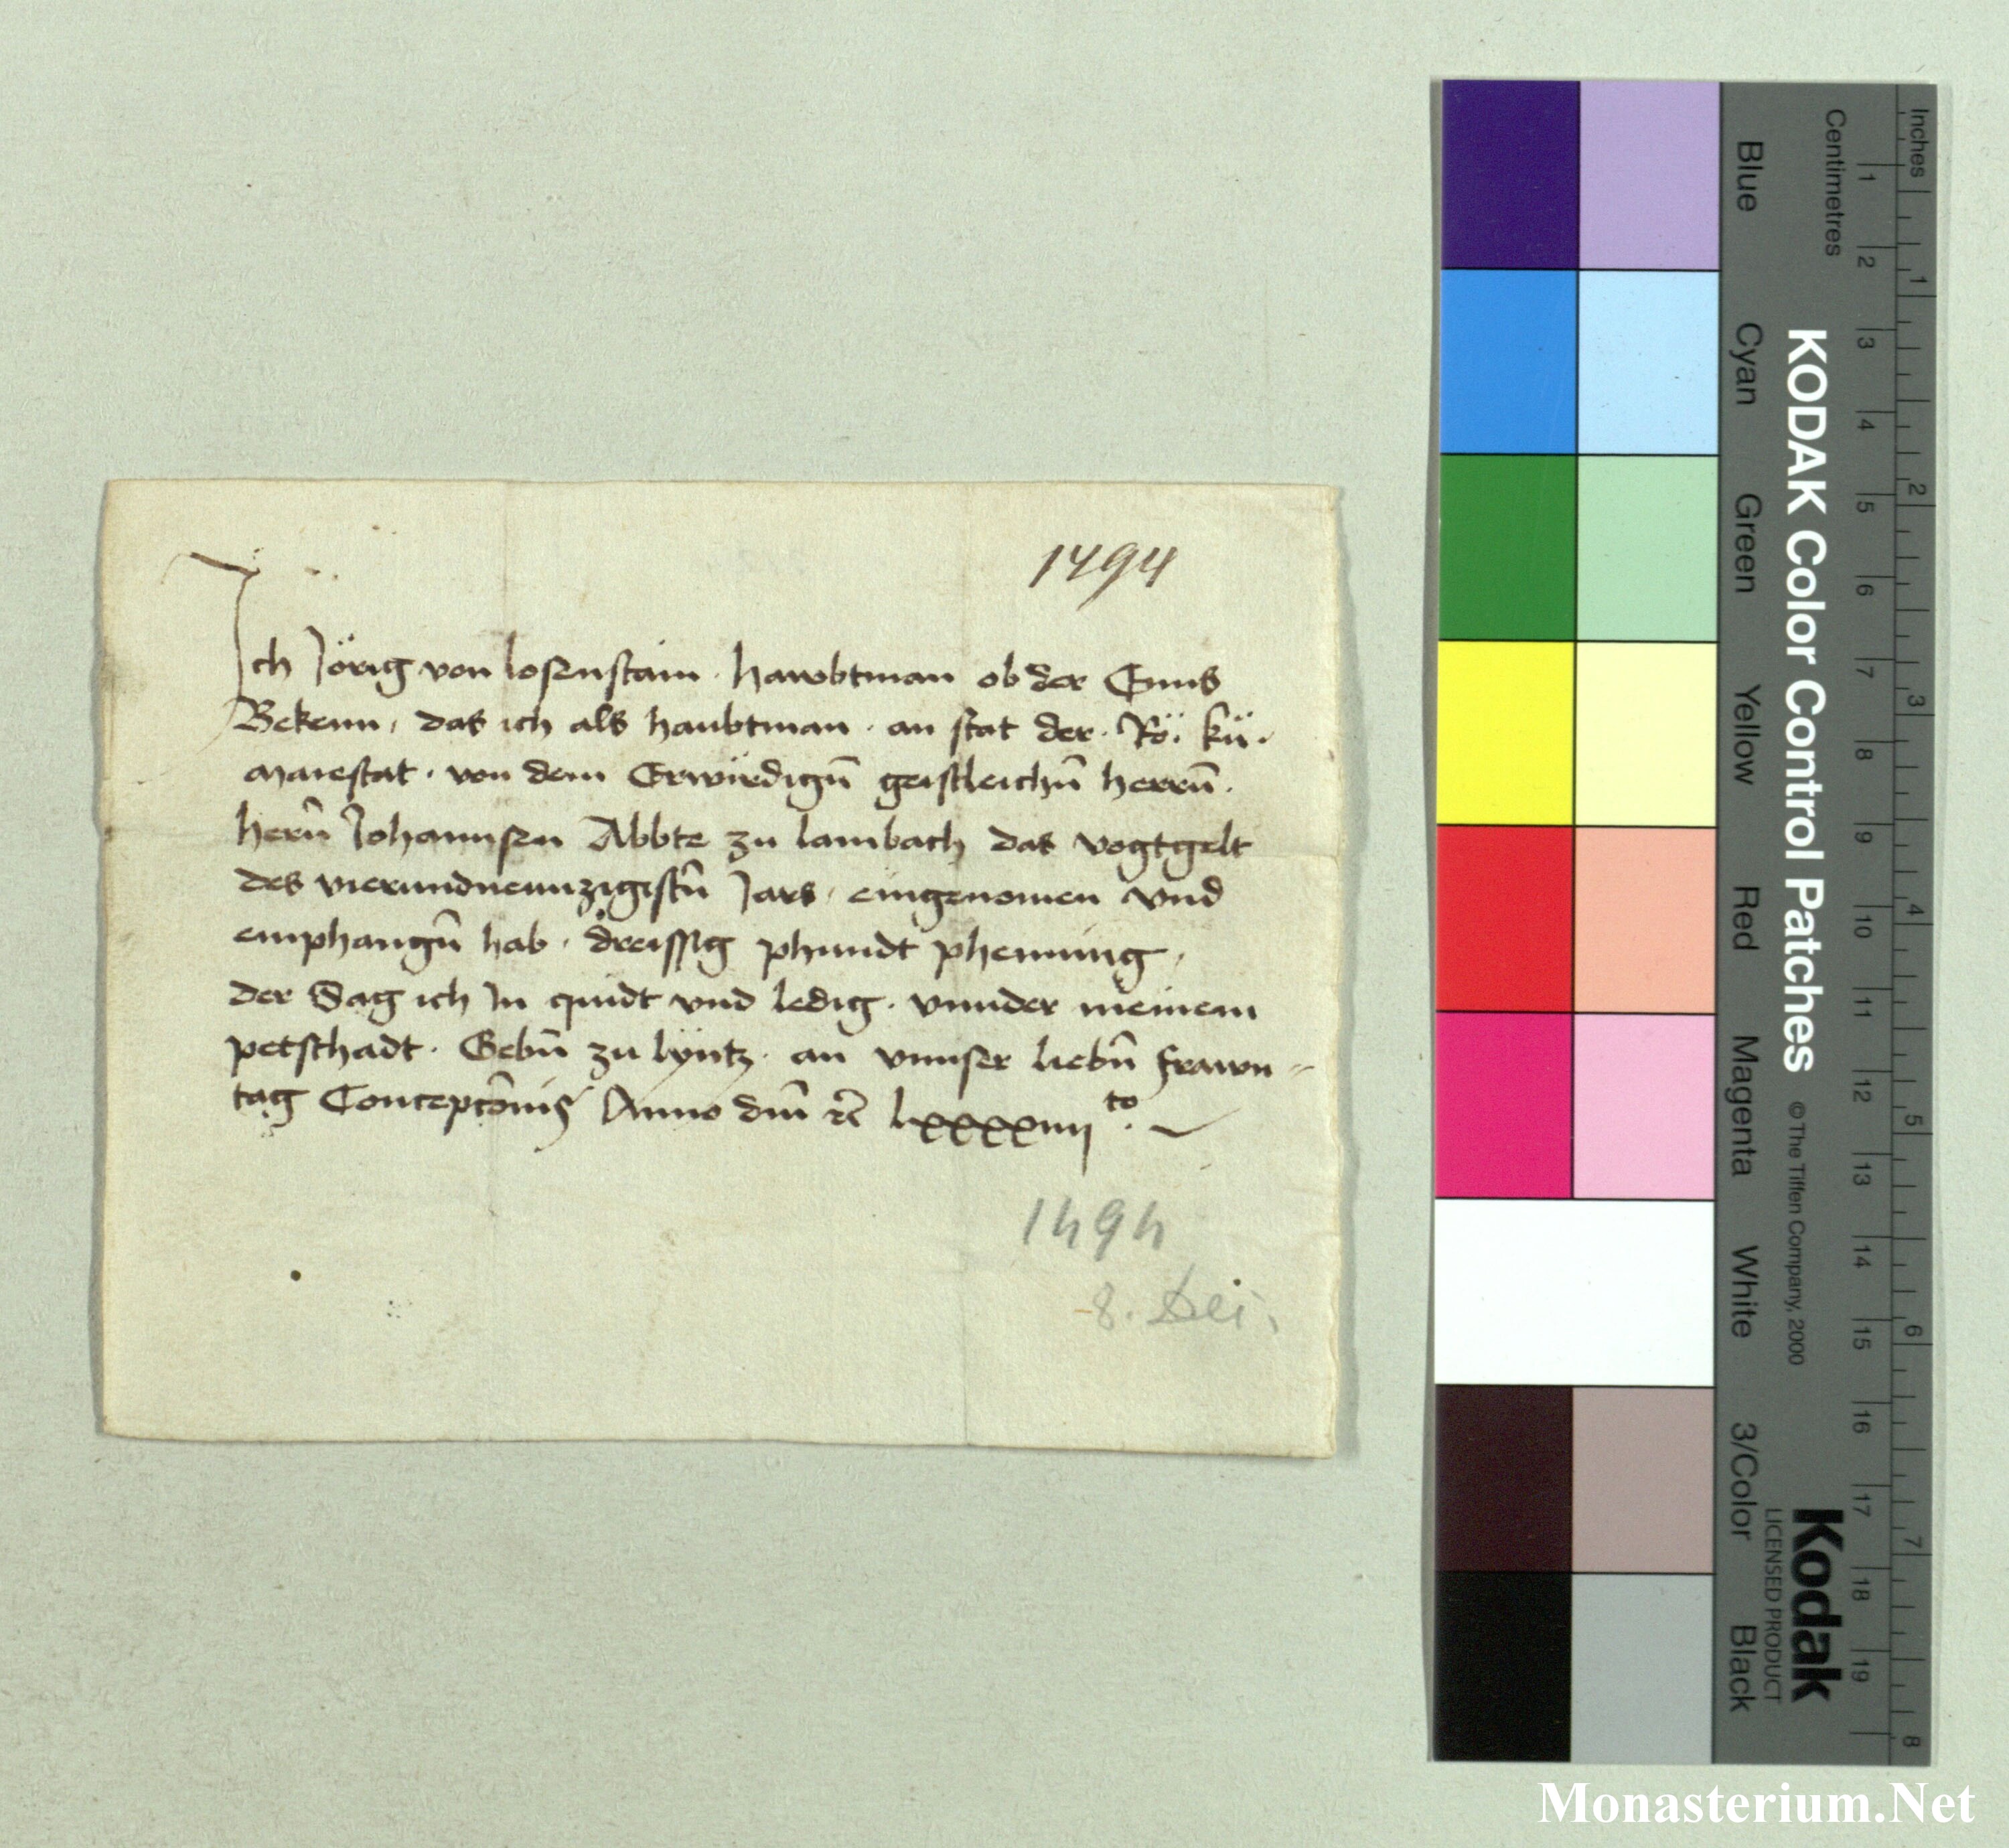 1494
Ich Jörig von losenstain · hawbtman ob der Enns
Bekenn, das ich als haubtman · an stat der · Rö: kü ·
Maiestat · von dem Erwirdigñ geistleichñ herrñ ·
herñ Johannsen Abbte zu lambach das vogtgelt
des vierundneunzigistñ Jars · eingenomen vnd
emphangñ hab · dreissig phundt phenning ·
der Sag ich In quidt vnd ledig · vnnder meinem
petschadt · Gebñ zu lÿntz · an vnnser liebñ frawn =
tag Conceptōnis Anno dm̄ rc̄ lxxxxiiij to ·
1494
8. Dez.
Blue
Cyan
Green
Yellow
Red
Magenta
White
3/Color
Black
KODAK Color Control Patches © The Tiffen Company, 2000
Kodak
LICENSED PRODUCT
Centimetres 1 2 3 4 5 6 7 8 9 10 11 12 13 14 15 16 17 18 19
Inches 1 2 3 4 5 6 7 8
Monasterium.Net